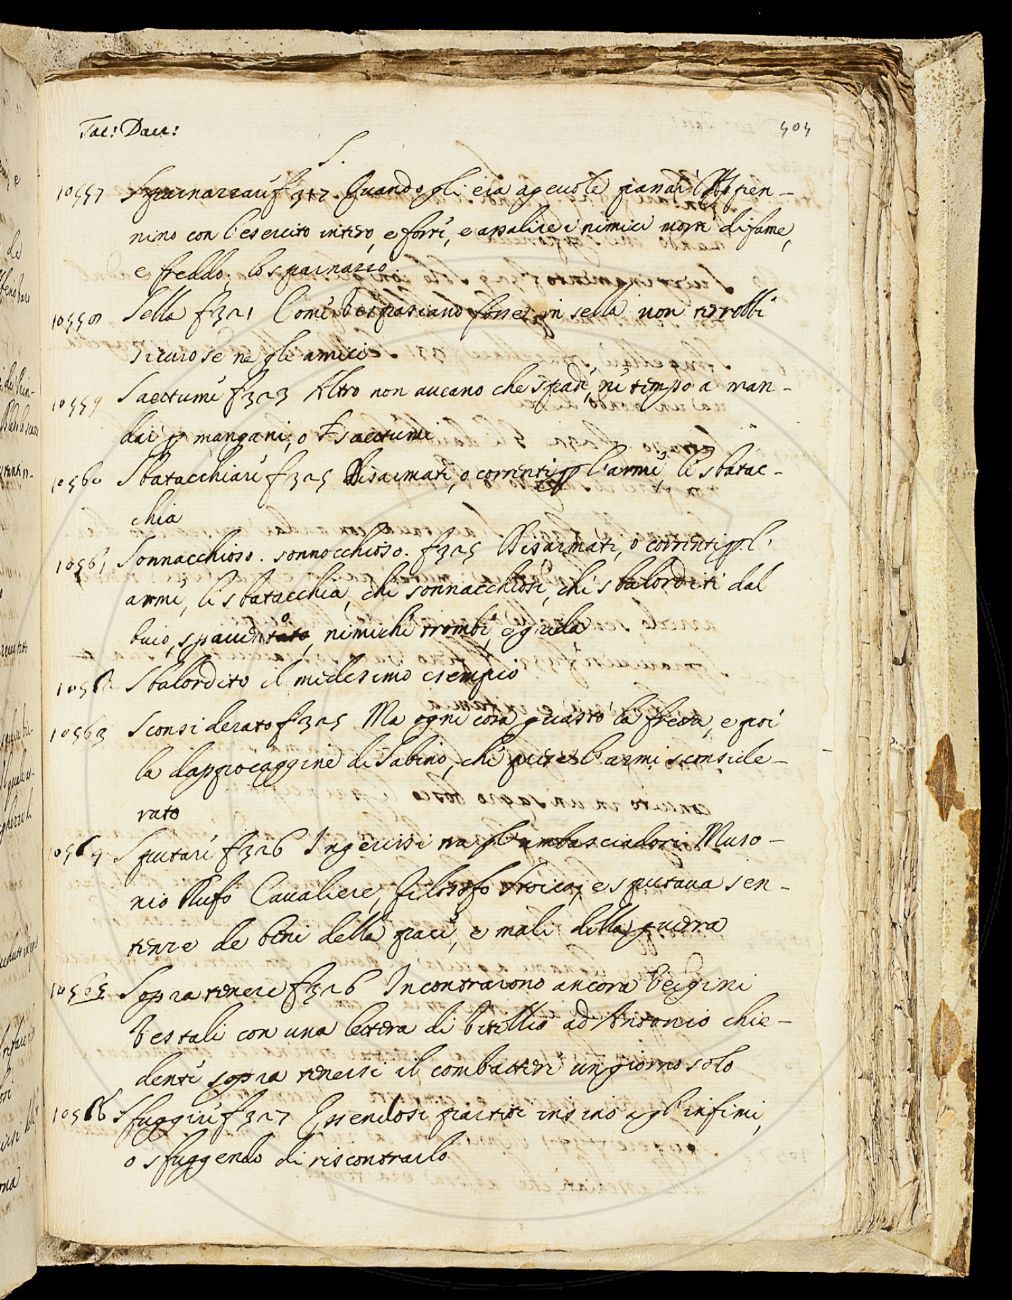 Tac: Dau:
505
S.
10557 Sparnazzare f. 317. Quando gli era agevole passar l'Appen-
nino con l'esercito intero, e forte, e assalire i nimici morti di fame,
e freddo, lo sparnazzò
10558 Sella f. 321 Come Vespasiano fosse in sella non verrebbe
sicurosene gli amici
10559 Saettume f. 323 Altro non aveano che spade, ne tempo a man-
dar p mangani, o Saettume
10560 Sbatacchiare f. 325 Disarmati, o correnti p l'armi, li sbatac-
chia
10561 Sonnacchioso. sonnocchioso. f. 325 Disarmati, o correnti p l'
armi, li sbatacchia, chi sonnacchiosi, chi sbalorditi dal
buio, spavento, nimichi trombe, e grida
10562 Sbalordito il medesimo esempio
10563 Sconsiderato f. 325 Ma ogni cosa guastò la fretta, e poi
la dappocaggine di Sabino, che prese l'armi sconside-
rato
10564 Sputare f. 326 Ingerissi tra gl'ambasciadori Muso-
nio Rufo Cavaliere, filosofo stoico, e sputava sen-
tenze de beni della pace, e mali della guerra
10565 Sopratenere f. 326 Incontrarono ancora Vergini
Vestali con una lettera di Vitellio ad Antonio chie-
dente sopratenersi il combattere un giorno solo
10566 Sfuggire f. 327 Essendosi partiti insino agl'infimi,
o sfuggendo di riscontrarlo